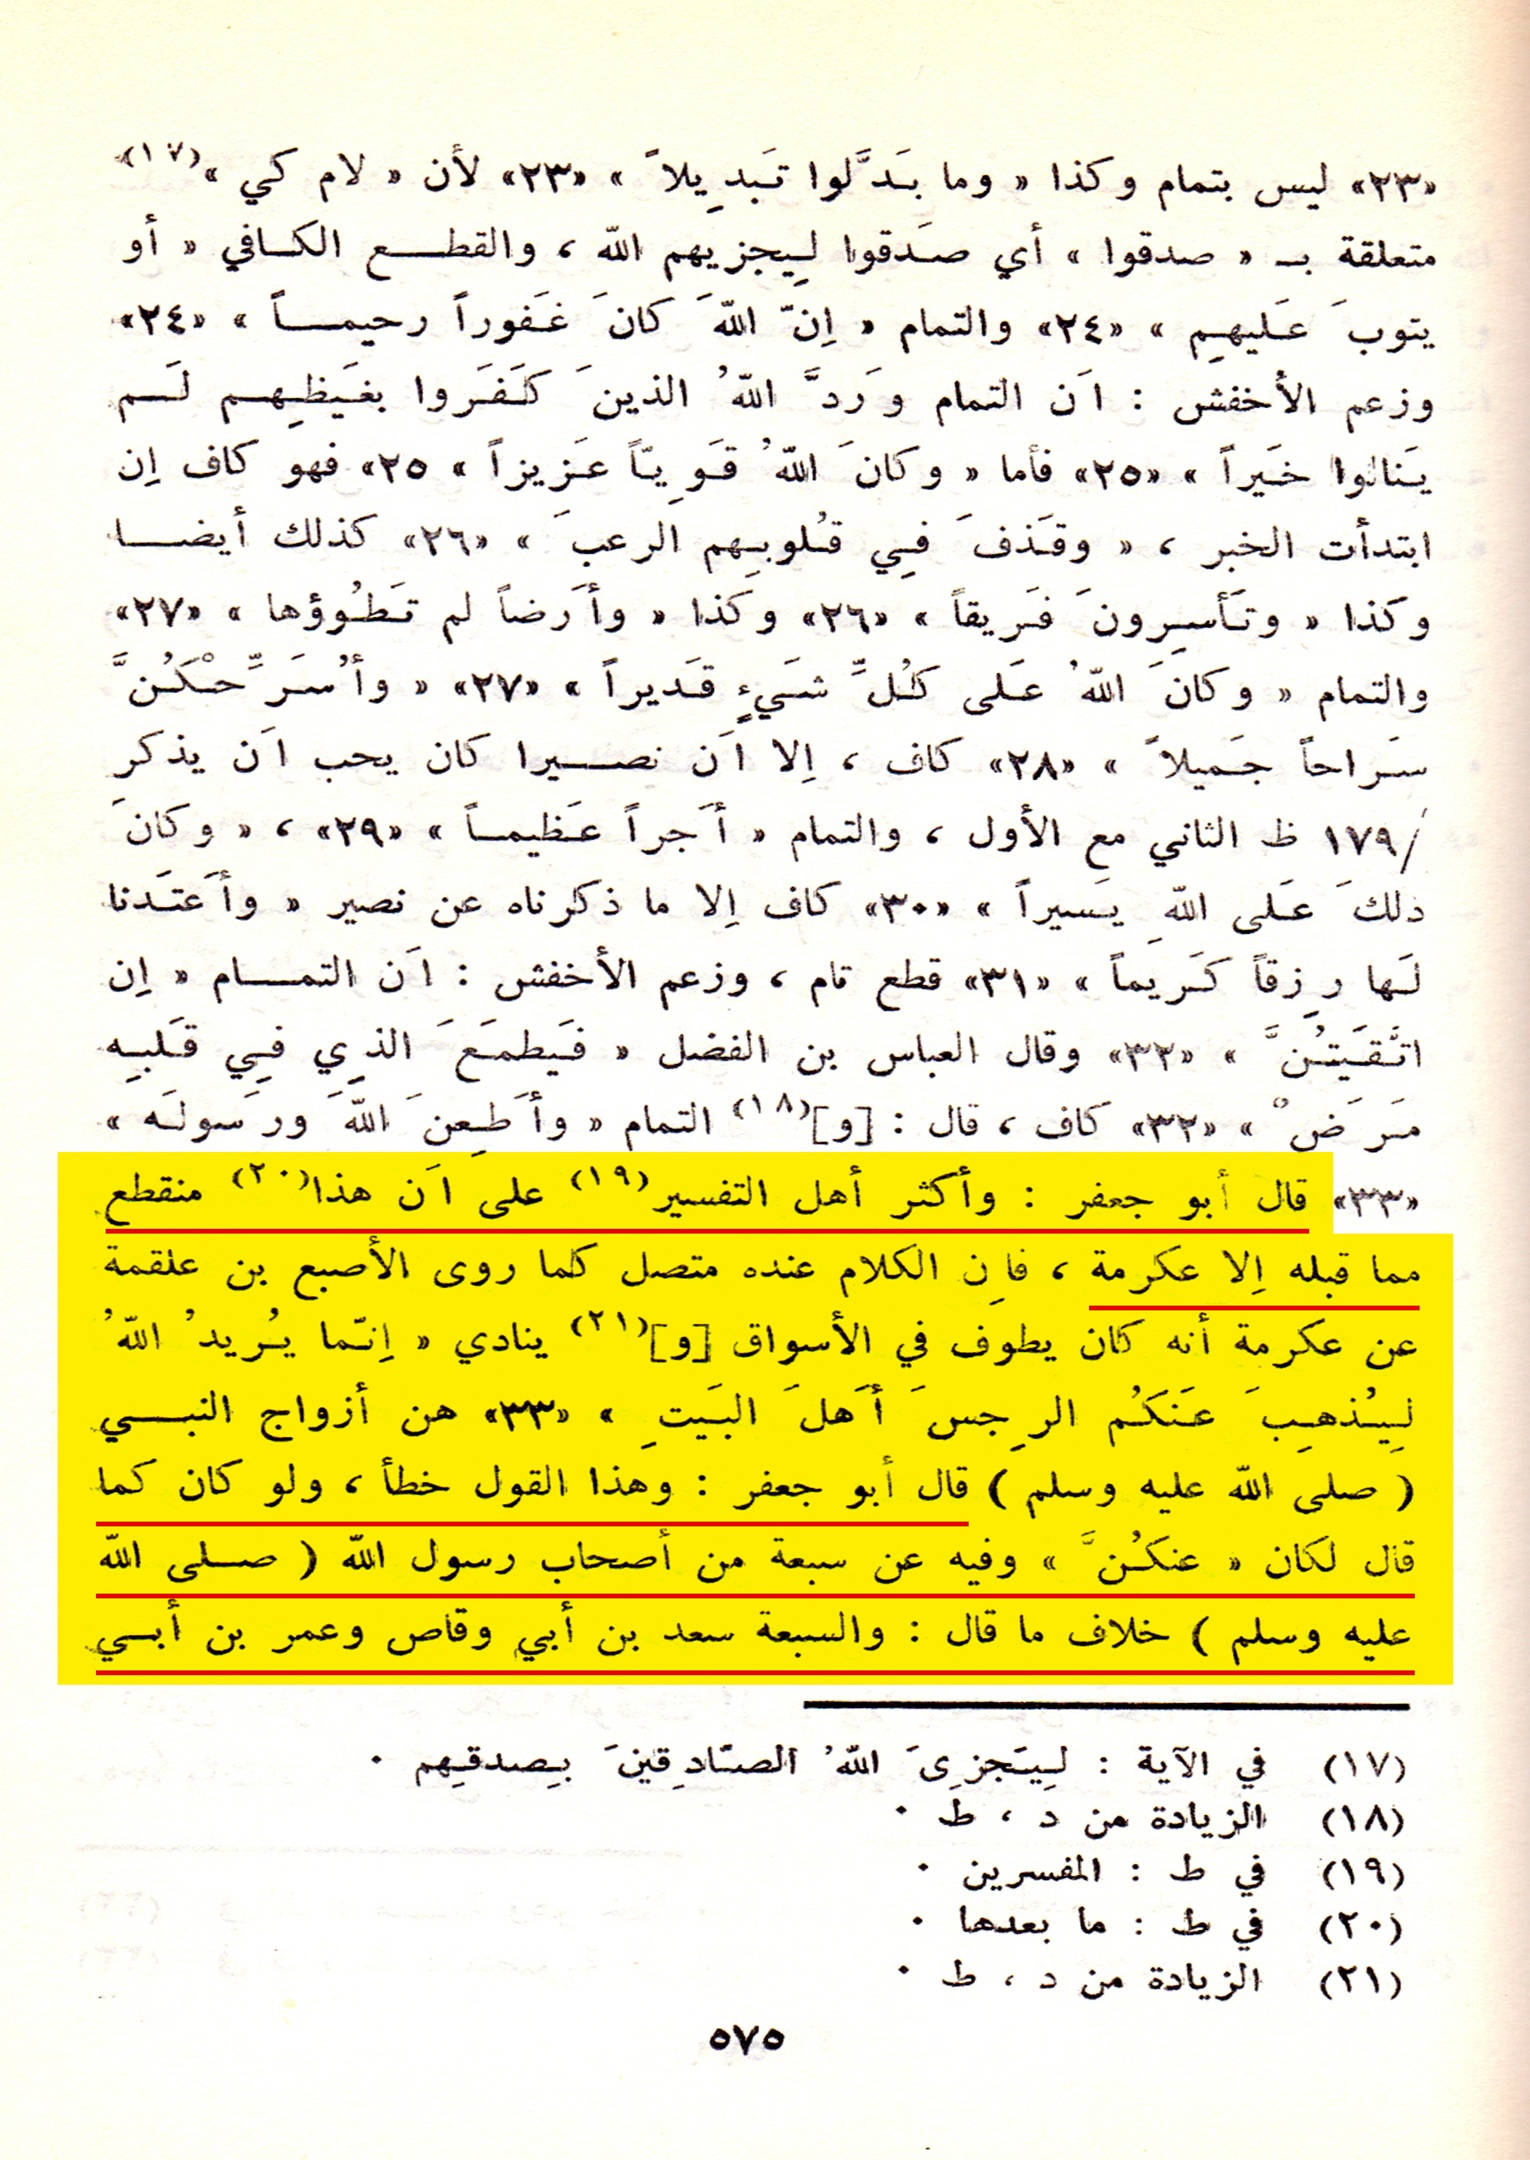 «٢٣» ليس بتمام وكذا « وما بَدَّلوا تَبدِيلاً » «٢٣» لأن « لام كي »(١٧)
متعلقة بـ « صدقوا » أي صَدقوا لِيجزيهم اللّه ، والقطــع الكــافي « أو
يتوبَ عَليهِم » «٢٤» والتمام « إنّ اللّهَ كانَ غَفوراً رحيمــاً » «٢٤»
وزعم الأخفش : اَن التمام وَردَّ اللّهُ الذينَ كَفَروا بغَيظِهم لَــم
يَنالوا خَيراً » «٢٥» فأما « وكانَ اللّهُ قَوِيّاً عَزيزاً » ٢٥» فهو كاف إن
ابتدأت الخبر ، « وقَذفَ فِي قُلوبِهم الرعبَ » «٢٦» كذلك أيضــا
وكذا « وتَأسِرونَ فَريقاً » «٢٦» وكذا « وأَرضاً لم تَطُوؤها » «٢٧»
والتمام « وكانَ اللّهُ عَلى كُلِّ شَيءٍ قَديراً » «٢٧» « وأُسَرِّحْكُنَّ
سَراحاً جَميلاً » «٢٨» كاف ، إلا اَن نصــيرا كان يحب اَن يذكر
/١٧٩ ظ الثاني مع الأول ، والتمام « أَجراً عَظيمــاً » «٢٩» ، « وكانَ
ذلكَ عَلى اللّهِ يَسيراً » «٣٠» كاف إلا ما ذكرناه عن نصير « وأَعتَدنا
لَها رِزقاً كَريماً » «٣١» قطع تام ، وزعم الأخفش : اَن التمــام « إن
اتَّقَيتُنَّ » «٣٢» وقال العباس بن الفضل « فَيطمَعَ الذِي فِي قَلبِه
مَرَضٌ » «٣٢» كاف ، قال : [و](١٨) التمام « وأَطِعنَ اللّهَ ورَسولَه »
«٣٣» قال أبو جعفر : وأكثر أهل التفسير(١٩) على اَن هذا(٢٠) منقطع
مما قبله إلا عكرمة ، فإن الكلام عنده متصل كما روى الأصبع بن علقمة
عن عكرمة أنه كان يطوف في الأسواق [و](٢١) ينادي « إنّما يُريدُ اللّهُ
لِيُذهِبَ عَنكُم الرِجسَ أَهلَ البَيتِ » «٣٣» هن أزواج النبــي
( صلى اللّه عليه وسلم ) قال أبو جعفر : وهذا القول خطأ ، ولو كان كما
قال لكان « عنكُنَّ » وفيه عن سبعة من أصحاب رسول اللّه ( صــلى اللّه
عليه وسلم ) خلاف ما قال : والسبعة سعد بن أبي وقاص وعمر بن أبــي
(١٧) في الآية : لِيَجزِىَ اللّهُ الصّادِقينَ بِصدقِهم ٠
(١٨) الزيادة من د ، ط ٠
(١٩) في ط : المفسرين ٠
(٢٠) في ط : ما بعدها ٠
(٢١) الزيادة من د ، ط ٠
٥٧٥